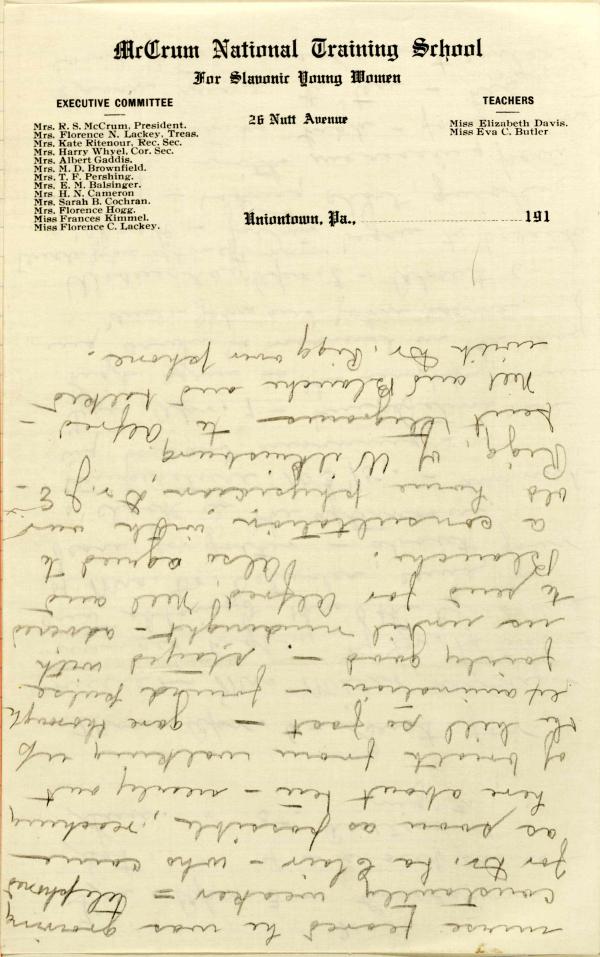 McCrum National Training School
For Slavonic Young Women
EXECUTIVE COMMITTEE
Mrs. R. S. McCrum, President.
Mrs. Florence N. Lackey, Treas.
Mrs. Kate Ritenour, Rec. Sec.
Mrs. Harry Whyel, Cor. Sec.
Mrs. Albert Gaddis.
Mrs. M. D. Brownfield.
Mrs. T. F. Pershing.
Mrs. E. M. Balsinger.
Mrs H. N. Cameron
Mrs. Sarah B. Cochran.
Mrs. Florence Hogg.
Miss Frances Kimmel.
Miss Florence C. Lackey.
26 Nutt Avenue
TEACHERS
Miss Elizabeth Davis.
Miss Eva C. Butler
Uniontown, Pa., 191
nurse feared he was growing
constantly weaker = telephoned
for Dr. La Clair - who came
as soon as possible, reaching
here about ten - nearly out
of breath from walking up
the hill so fast - gave thorough
examination - found pulse
fairly good - stayed with
us until midnight - advised
to send for Alfred Neil and
Blanche. Also agreed to
a consultation with our
old home physician, Dr. J. E. -
Rigg, of Wilkinsburg
sent telegrams to Alfred -
Neil and Blanche and talked
with Dr. Rigg over phone.